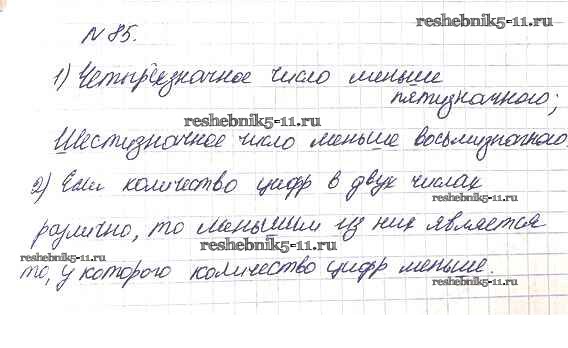 reshebnik5-11.ru
N 85.
1) Четырёхзначное число меньше
пятизначного;
reshebnik5-11.ru
Шестизначное число меньше восьмизначного.
2) Если количество цифр в двух числах
reshebnik5-11.ru
различно, то меньшим из них является
reshebnik5-11.ru
reshebnik5-11.ru
то, у которого количество цифр меньше.
reshebnik5-11.ru